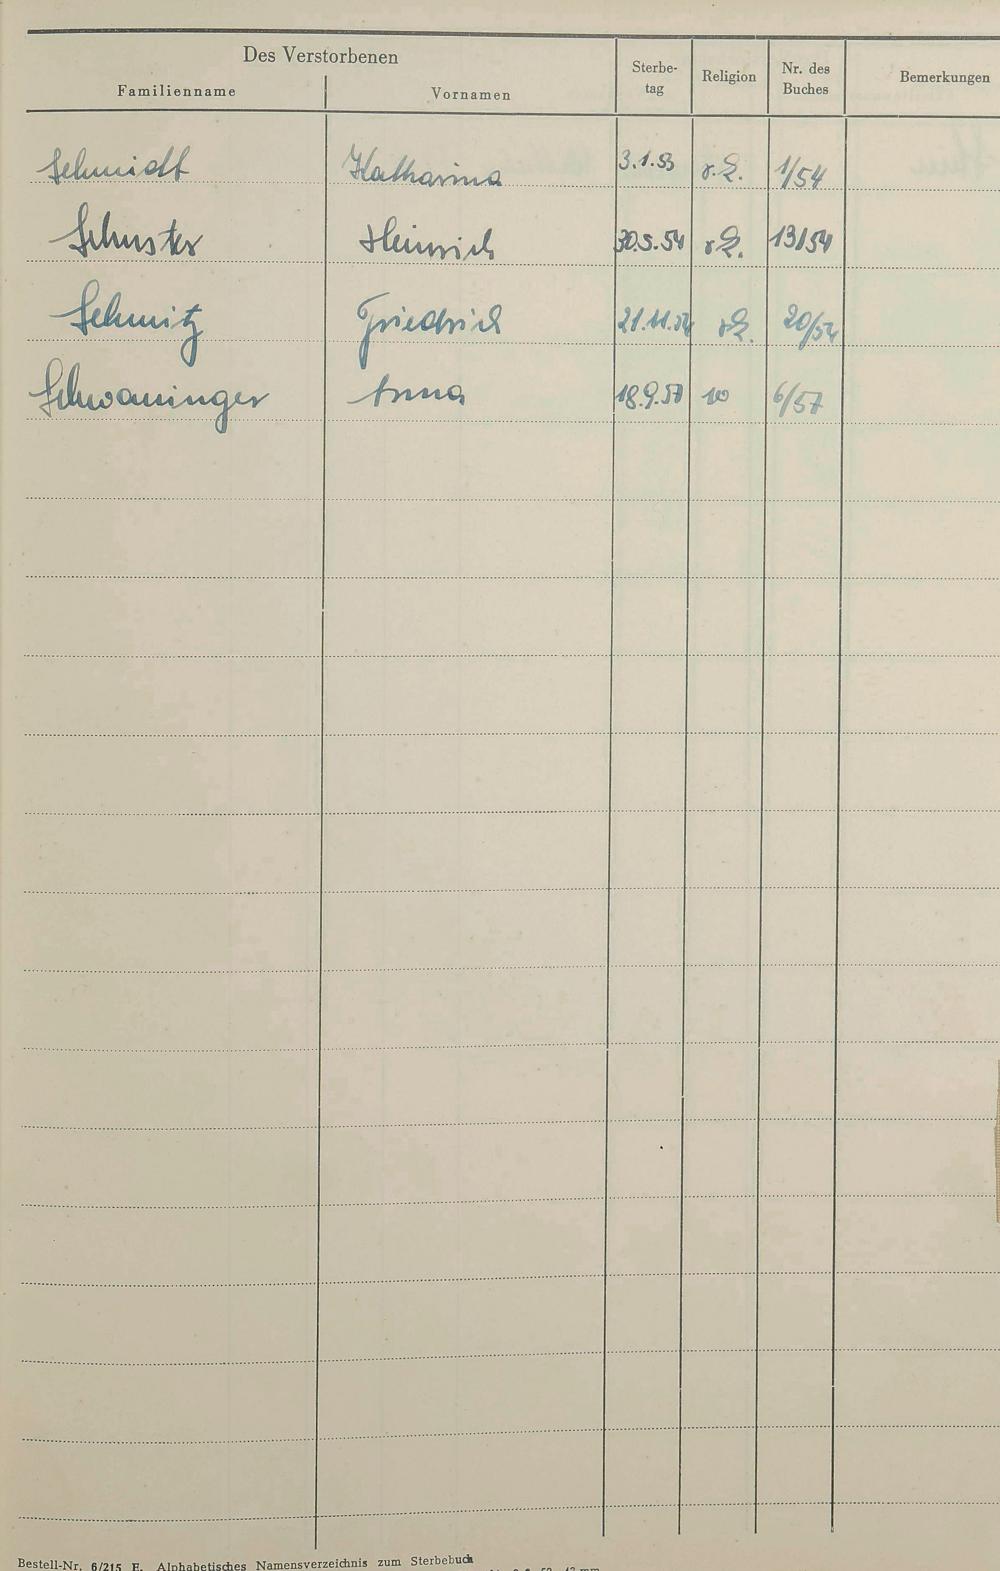 Des Verstorbenen
Familienname Vornamen Sterbe-tag Religion Nr. des Buches Bemerkungen
Schmidt Katharina 3.1.53 r.k. 1/54
Schuster Heinrich 30.5.54 r.k. 13/54
Schmitz Friedrich 21.11.54 r.k. 20/54
Schwaninger Anna 18.9.57 6/57
Bestell-Nr. 6/215 E. Alphabetisches Namensverzeichnis zum Sterbebuch